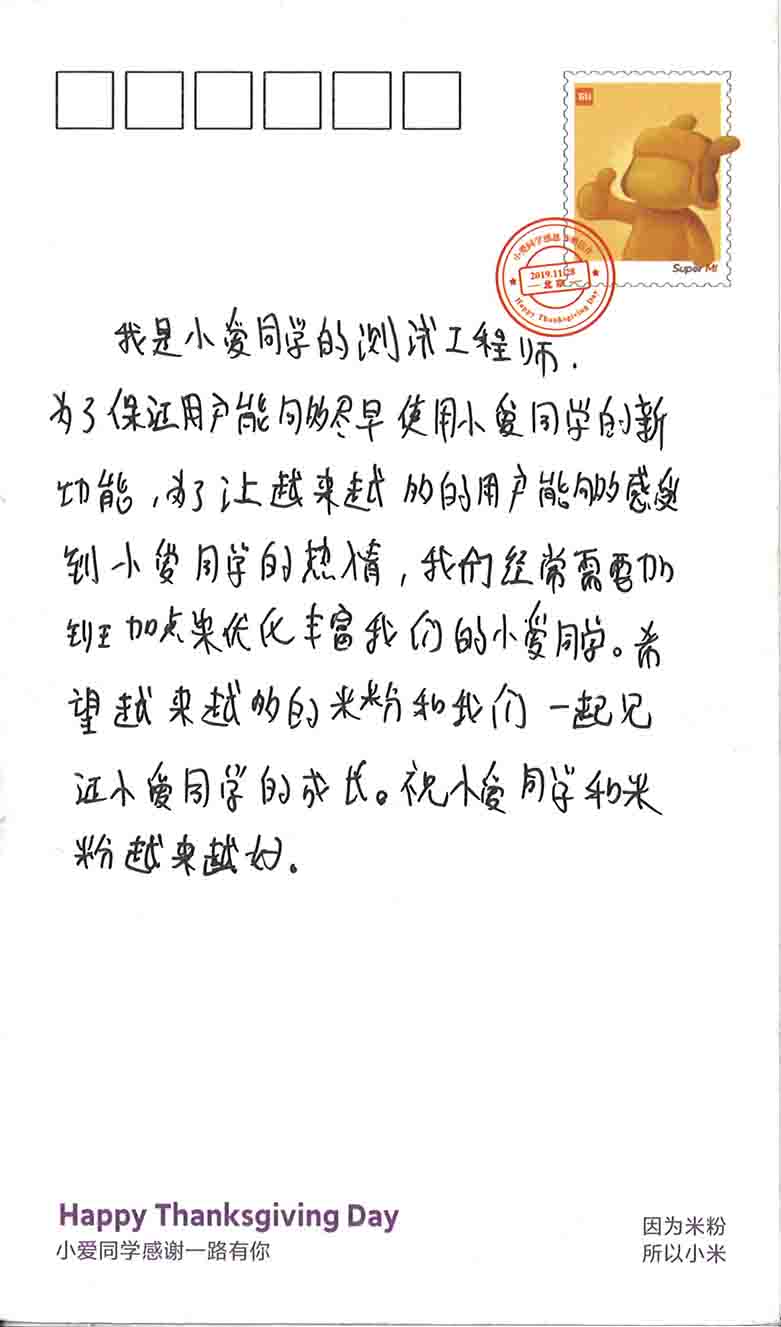 Mi
Super Mi
小爱同学感恩节明信片
2019.11.28
北京
Happy Thanksgiving Day
我是小爱同学的测试工程师.
为了保证用户能够尽早使用小爱同学的新
功能,为了让越来越多的用户能够感受
到小爱同学的热情,我们经常需要加
班加点来优化丰富我们的小爱同学。希
望越来越多的米粉和我们一起见
证小爱同学的成长。祝小爱同学和米
粉越来越好.
Happy Thanksgiving Day
小爱同学感谢一路有你
因为米粉
所以小米